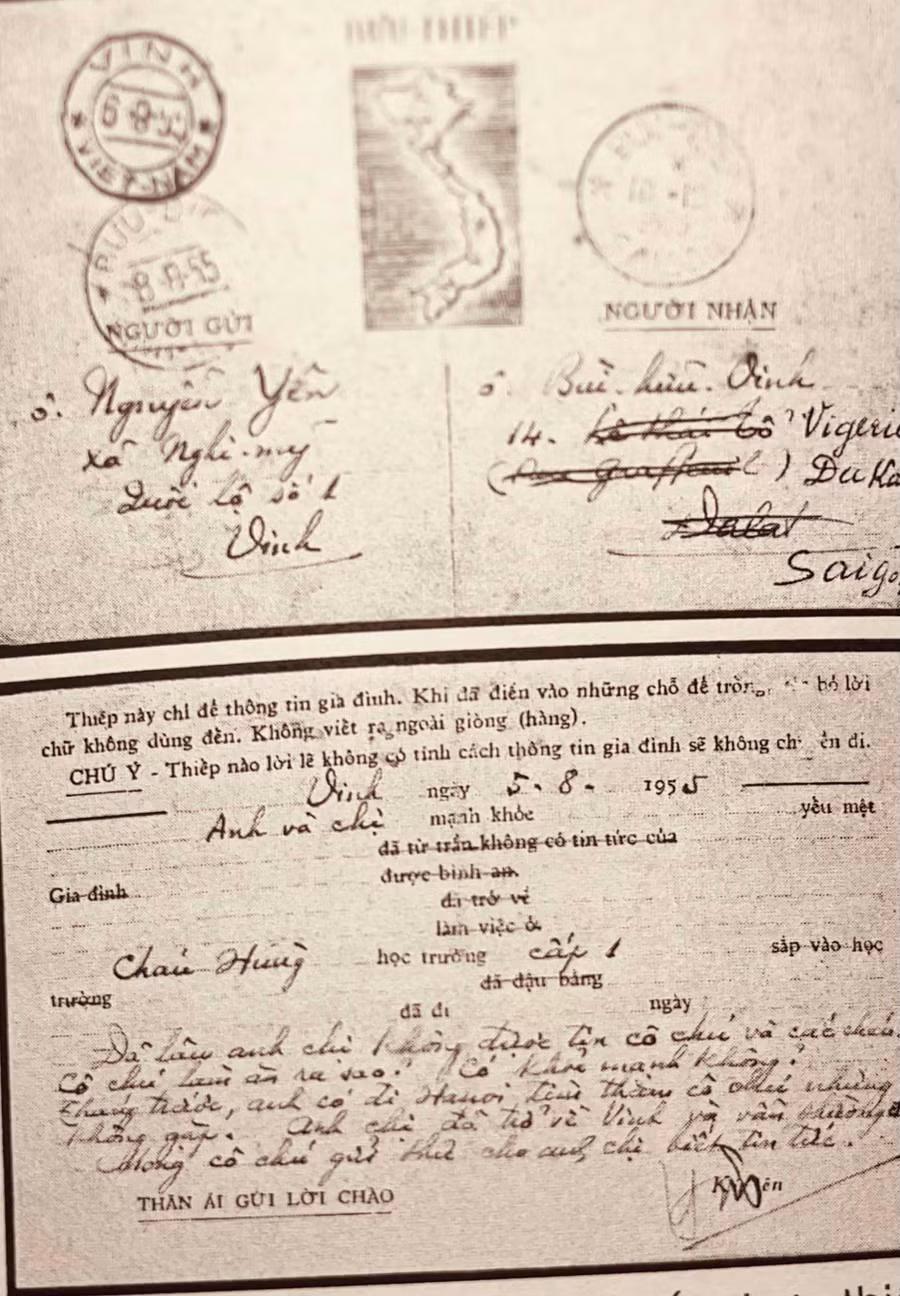 VINH
6-8-55
VIET-NAM
BƯU
8-8-55
NGƯỜI GỬI
NGƯỜI NHẬN
ô. Nguyễn Yên
xã Nghi-mỹ
Quốc lộ số 1
Vinh
ô. Bùi-hữu-Vinh
14. Lê thái Tổ Vigerie
( ) Du Ka
Dalat
Saigo
Thiếp này chỉ để thông tin gia đình. Khi đã điền vào những chỗ để trống, bỏ lời
chữ không dùng đến. Không viết ra ngoài giòng (hàng).
CHÚ Ý - Thiếp nào lời lẽ không có tính cách thông tin gia đình sẽ không đi.
Vinh ngày 5-8- 1955
Anh và chị mạnh khỏe yếu mệt
đã từ trần không có tin tức của
được bình an.
Gia đình
đã trở về
làm việc ở
Cháu Hùng học trường cấp 1 sắp vào học
đã đậu bằng
trường
đã đi ngày
Đã lâu anh chị không được tin cô chú và các cháu.
Cô chú làm ăn ra sao? Có khỏe mạnh không?
Tháng trước, anh có đi Hanoi tìm thăm cô chú nhưng
không gặp. Anh chị đã trở về Vinh và vẫn thường
Mong cô chú gửi thư cho anh chị biết tin tức.
THÂN ÁI GỬI LỜI CHÀO
Ký tên